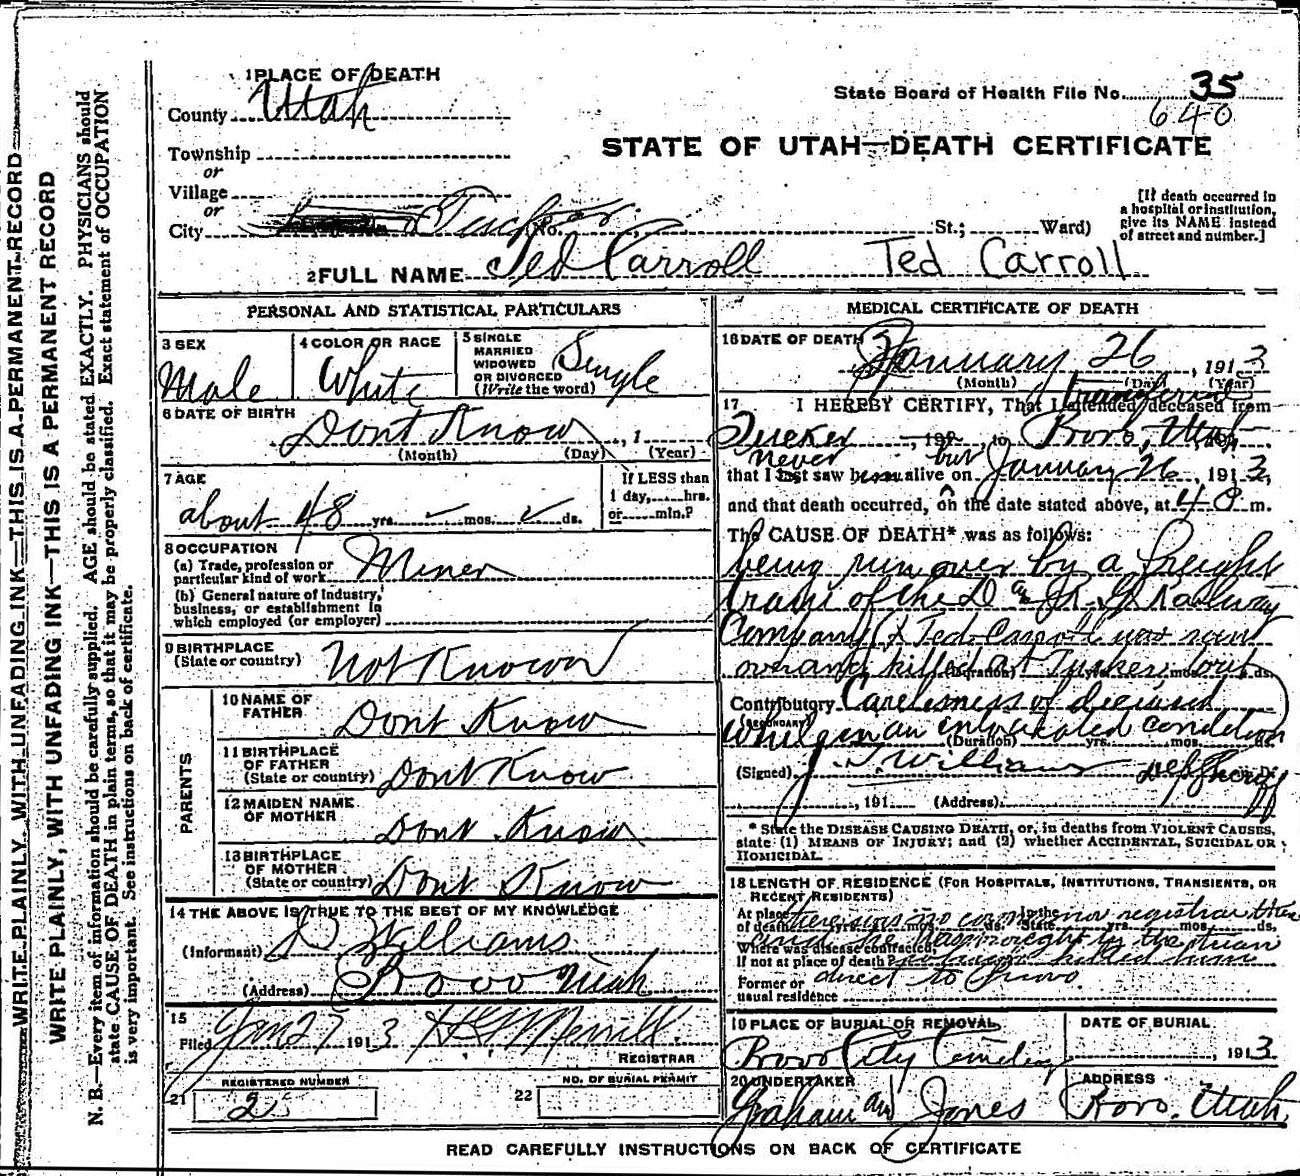 WRITE PLAINLY, WITH UNFADING INK—THIS IS A PERMANENT RECORD
WRITE PLAINLY, WITH UNFADING INK—THIS IS A PERMANENT RECORD
N. B.—Every item of information should be carefully supplied. AGE should be stated EXACTLY. PHYSICIANS should
state CAUSE OF DEATH in plain terms, so that it may be properly classified. Exact statement of OCCUPATION
is very important. See instructions on back of certificate.
1 PLACE OF DEATH
County Utah
Township
or
Village
or
City Tucker No. St.; Ward)
State Board of Health File No. 35
640
STATE OF UTAH—DEATH CERTIFICATE
[If death occurred in
a hospital or institution,
give its NAME instead
of street and number.]
2 FULL NAME Ted Carroll Ted Carroll
PERSONAL AND STATISTICAL PARTICULARS
3 SEX
Male
4 COLOR OR RACE
White
5 SINGLE
MARRIED
WIDOWED
OR DIVORCED
(Write the word)
Single
6 DATE OF BIRTH
Dont Know , 1
(Month) (Day) (Year)
7 AGE
about 48 yrs. mos. ds.
If LESS than
1 day, hrs.
or min.?
8 OCCUPATION
(a) Trade, profession or
particular kind of work Miner
(b) General nature of Industry,
business, or establishment in
which employed (or employer)
9 BIRTHPLACE
(State or country) Not Known
PARENTS
10 NAME OF
FATHER Dont Know
11 BIRTHPLACE
OF FATHER
(State or country) Dont Know
12 MAIDEN NAME
OF MOTHER Dont Know
13 BIRTHPLACE
OF MOTHER
(State or country) Dont Know
14 THE ABOVE IS TRUE TO THE BEST OF MY KNOWLEDGE
(Informant) Williams
(Address) Provo Utah
15
Filed Jan 27 1913 Merrill
REGISTRAR
REGISTERED NUMBER
21 2
NO. OF BURIAL PERMIT
22
MEDICAL CERTIFICATE OF DEATH
16 DATE OF DEATH
January 26, 1913
(Month) (Day) (Year)
17 I HEREBY CERTIFY, That I attended deceased from
Tucker , 191 , to Provo, Utah
never but
that I last saw him alive on January 26, 1913,
and that death occurred, on the date stated above, at 4 m.
The CAUSE OF DEATH* was as follows:
being run over by a freight
train of the D and R. G. Railway
Company ( Ted Carroll was run
over and killed at Tucker,
(Duration) yrs. mos. ds.
Contributory Carelesness of deceased
(SECONDARY)
while in an intoxicated condition
(Duration) yrs. mos. ds.
(Signed) J. Williams Dep Sheriff
, 191 (Address)
* State the DISEASE CAUSING DEATH, or, in deaths from VIOLENT CAUSES,
state (1) MEANS OF INJURY; and (2) whether ACCIDENTAL, SUICIDAL OR
HOMICIDAL.
18 LENGTH OF RESIDENCE (FOR HOSPITALS, INSTITUTIONS, TRANSIENTS, OR
RECENT RESIDENTS)
At place
of death yrs. mos. ds. In the State yrs. mos. ds.
there was no coroner nor registrar
Where was disease contracted
If not at place of death?
Former or
usual residence
direct to Provo.
19 PLACE OF BURIAL OR REMOVAL
Provo City Cemetery
DATE OF BURIAL
, 1913
20 UNDERTAKER
Graham and Jones
ADDRESS
Provo, Utah
READ CAREFULLY INSTRUCTIONS ON BACK OF CERTIFICATE